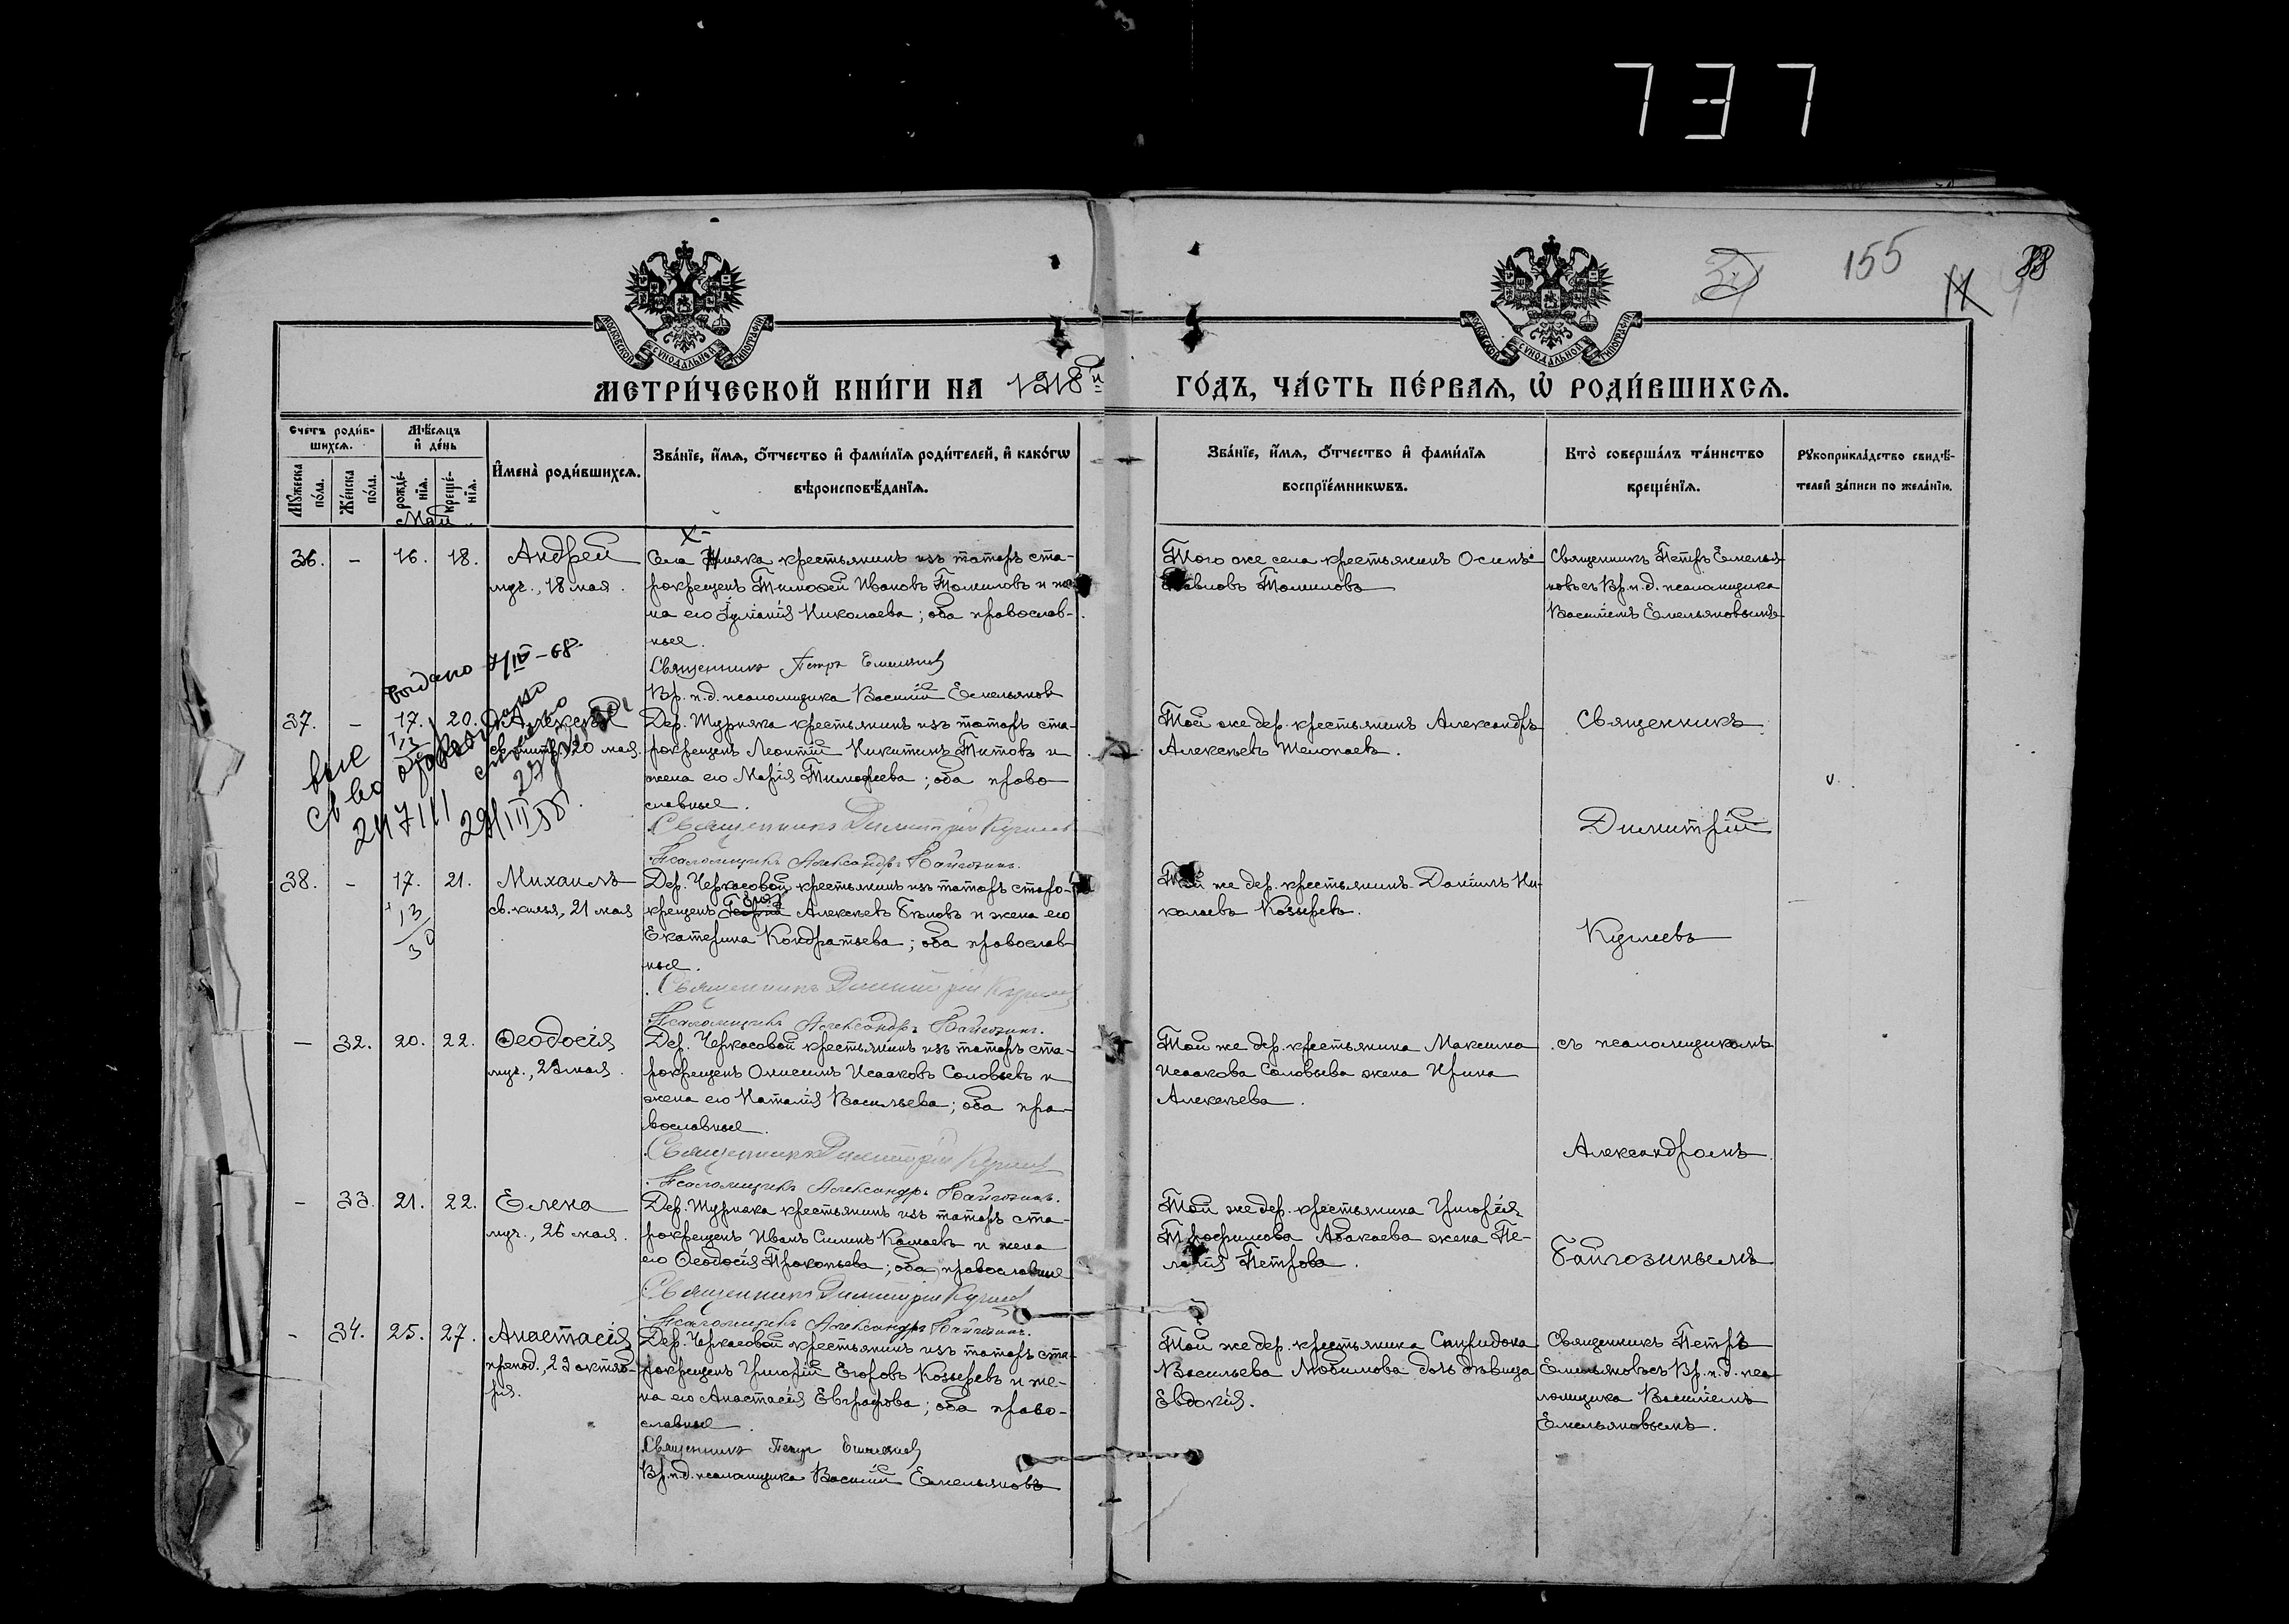 737
155
38
МОСКОВСКОЙ СѴНОДАЛЬНОЙ ТИПОГРАФІИ
МОСКОВСКОЙ СѴНОДАЛЬНОЙ ТИПОГРАФІИ
МЕТРИ́ЧЕСКОЙ КНИ́ГИ НА 1918й ГО́ДЪ, ЧА́СТЬ ПЕ́РВАѦ, Ѡ҆ РОДИ́ВШИХСѦ.
Счетъ роди́вшихсѧ.
Мꙋжеска по́ла.
Же́нска по́ла.
Мѣ́сѧцъ и҆ де́нь
рожде́нїѧ.
креще́нїѧ.
И҆мена̀ роди́вшихсѧ.
Зва́нїе, и҆́мѧ, ѻ҆́тчество и҆ фами́лїѧ роди́телей, и҆ како́гѡ
вѣроисповѣ́данїѧ.
Зва́нїе, и҆́мѧ, ѻ҆́тчество и҆ фами́лїѧ
воспрїе́мникѡвъ.
Кто̀ соверша́лъ та́инство
креще́нїѧ.
Рꙋкоприкла́дство свидѣ́-
телей за́писи по жела́нїю.
Май
36. - 16. 18. Андрей
муч., 18 мая.
Села крестьянинъ изъ татаръ ста-
рокрещенъ Тимоѳей Ивановъ Томиловъ и же-
на его Іуліанія Николаева; оба православ-
ные.
Священникъ Петръ Емельяновъ
Вр. и.д. псаломщика Василій Емельяновъ
Того же села крестьянинъ Осипъ
Павловъ Томиловъ
Священникъ Петръ Емелья-
новъ съ Вр.и.д. псаломщика
Василіемъ Емельяновымъ
выдано 4/IV-68.
37. - 17. 20. Алексѣй
св. митр. 20 мая.
Дер. Шурняка крестьянинъ изъ татаръ ста-
рокрещенъ Леонтій Никитинъ Титовъ и
жена его Марія Тимофеева; оба право-
славные.
Священникъ Димитрій Кушеевъ
Псаломщикъ Александръ Байгозинъ.
Той же дер. крестьянинъ Александръ
Алексѣевъ Шелопаевъ.
Священникъ
Димитрій
38. - 17. 21. Михаилъ
св. князь, 21 мая
Дер. Черкасовой крестьянинъ изъ татаръ старо-
крещенъ Алексѣевъ Бѣловъ и жена его
Екатерина Кондратьева; оба православ-
ные.
Священникъ Димитрій Кушеевъ
Псаломщикъ Александръ Байгозинъ.
Той же дер. крестьянинъ Даніилъ Ни-
колаевъ Козыревъ.
Кушеевъ
- 32. 20. 22. Ѳеодосія
муч., 29 мая.
Дер. Черкасовой крестьянинъ изъ татаръ ста-
рокрещенъ Онисимъ Исааковъ Соловьевъ и
жена его Наталія Васильева; оба пра-
вославные.
Священникъ Димитрій Кушеевъ
Псаломщикъ Александръ Байгозинъ.
Той же дер. крестьянина Максима
Исаакова Соловьева жена Ирина
Алексѣева.
съ псаломщикомъ
Александромъ
- 33. 21. 22. Елена
муч., 26 мая.
Дер. Шурняка крестьянинъ изъ татаръ ста-
рокрещенъ Иванъ Силинъ Камаевъ и жена
его Ѳеодосія Прокопьева; оба православные
Священникъ Димитрій Кушеевъ
Псаломщикъ Александръ Байгозинъ.
Той же дер. крестьянина Григорія
Трофимова Абакаева жена Пе-
лагія Петрова.
Байгозинымъ
- 34. 25. 27. Анастасія
препод., 29 октяб-
ря.
Дер. Черкасовой крестьянинъ изъ татаръ ста-
рокрещенъ Григорій Егоровъ Козыревъ и же-
на его Анастасія Евграфова; оба право-
славные.
Священникъ Петръ Емельяновъ
Вр.и.д. псаломщика Василій Емельяновъ
Той же дер. крестьянина Спиридона
Васильева Любимова дочь дѣвица
Евдокія.
Священникъ Петръ
Емельяновъ съ Вр.и.д. пса-
ломщика Василіемъ
Емельяновымъ.